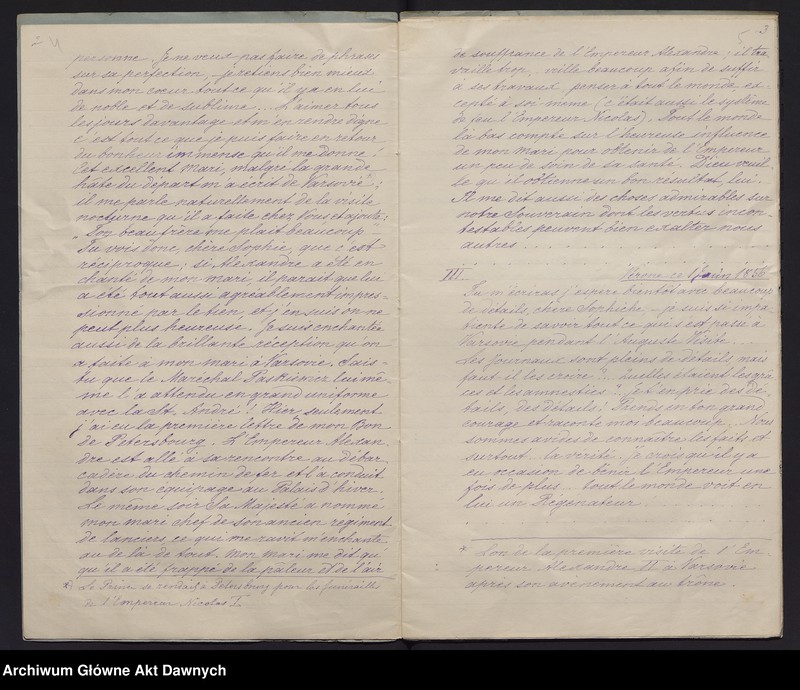 2 4
personne. Je ne veux pas faire de phrases
sur sa perfection, je retiens bien mieux
dans mon cœur tout ce qu'il y a en lui
de noble et de sublime... L'aimer tous
les jours davantage et m'en rendre digne
c'est tout ce que je puis faire en retour
du bonheur immense qu'il me donne!
Cet excellent mari, malgré la grande
hâte du départ m'a écrit de Varsovie*);
il me parle naturellement de la visite
nocturne qu'il a faite chez Vous et ajoute:
"Ton beau frère me plaît beaucoup"
Tu vois donc, chère Sophie, que c'est
réciproque; si Alexandre a été en
chanté de mon mari, il paraît que lui
a été tout aussi agréablement impres-
sionné par le tien, et j'en suis on ne
peut plus heureuse. Je suis enchantée
aussi de la brillante réception qu'on
a faite à mon mari à Varsovie. Sais-
tu que le Maréchal Paskiewicz lui mê-
me l'a attendu en grand uniforme
avec la St. André! Hier seulement
j'ai eu la première lettre de mon Bon
de Petersbourg. L'Empereur Alexan-
dre est allé à sa rencontre au débar-
cadère du chemin de fer et l'a conduit
dans son équipage au Palais d'hiver.
Le même soir Sa Majesté a nommé
mon mari chef de son ancien regiment
de lanciers, ce qui me ravit m'enchante
au de là de tout. Mon mari me dit qu'
qu'il a été frappé de la paleur et de l'air
*) Le Prince se rendait à Petersbourg pour les funérailles
de l'Empereur Nicolas I.
5 3
de souffrance de l'Empereur Alexandre; il tra
vaille trop, veille beaucoup afin de suffir
à ses travaux, penser à tout le monde ex-
cepté à soi-même (c'était aussi le système
de feu l'Empereur Nicolas). Tout le monde
là bas compte sur l'heureuse influence
de mon mari pour obtenir de l'Empereur
un peu de soin de sa santé. Dieu veuil
le qu'il obtienne un bon résultat, lui.
Il me dit aussi des choses admirables sur
notre Souverain dont les vertus incon-
testables peuvent bien exalter nous
autres
III Vérone ce 1 juin 1856
Tu m'écriras j'espère bientôt avec beaucoup
de détails, chère Sophiche, je suis si impa-
tiente de savoir tout ce qui s'est passé à
Varsovie pendant l'Auguste Visite.*
Les journaux sont pleins de détails mais
faut il les croire?.. Quelles étaient les grâ
ces et les amnesties? Je t'en prie des dé-
tails, des détails! Prends en ton grand
courage et raconte moi beaucoup. Nous
sommes avides de connaître les faits et
surtout la vérité. Je crois qu'il y a
eu occasion de bénir l'Empereur une
fois de plus... tout le monde voit en
lui un Régénateur
* Lors de la première visite de l'Em-
pereur Alexandre II à Varsovie
après son avènement au trône.
Archiwum Główne Akt Dawnych